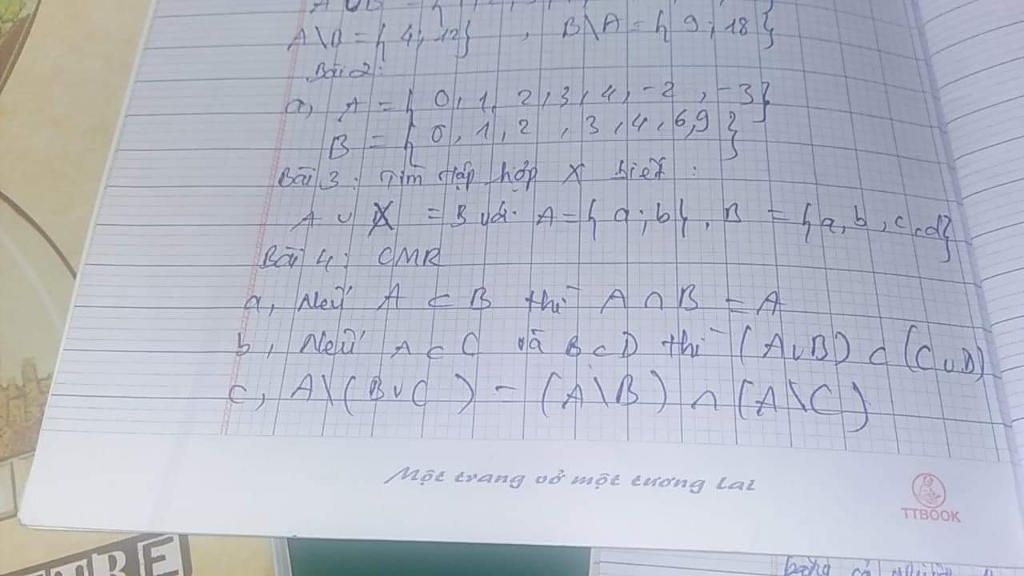 A ∪ B = {
A\B = { 4; 12} , B\A = { 9; 18 }
Bài 2:
a, A = { 0, 1, 2, 3, 4, -2, -3}
B = { 0, 1, 2, 3, 4, 6, 9 }
Bài 3: Tìm tập hợp X biết:
A ∪ X = B với A = { a; b }, B = {a, b, c, d}
Bài 4: CMR
a, Nếu A ⊂ B thì A ∩ B = A
b, Nếu A ⊂ C và B ⊂ D thì (A∪B) ⊂ (C∪D)
c, A\(B∪C) = (A\B) ∩ (A\C)
Một trang vở một tương lai
TTBOOK